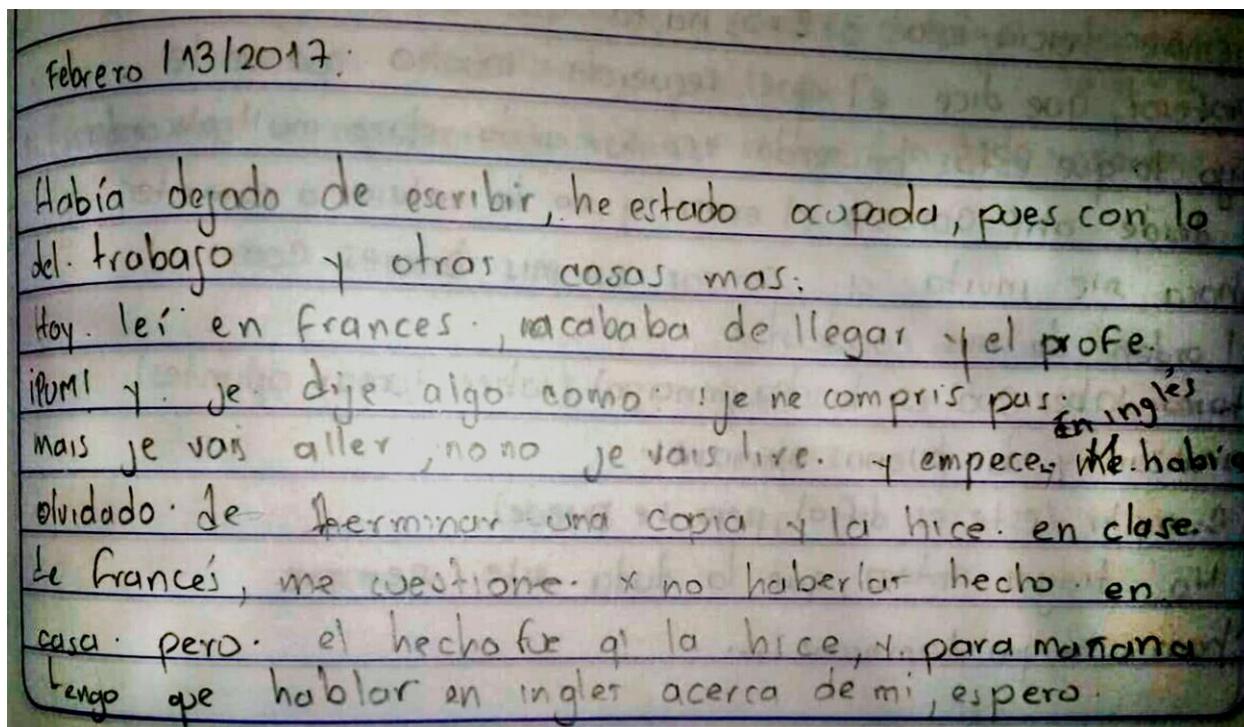 Febrero /13/2017.
Había dejado de escribir, he estado ocupada, pues con lo
del. trabajo y otras cosas mas.
Hoy. leí en frances., acababa de llegar y el profe.
¡PUM! y. je. dije algo como: je ne compris pas
En inglés
mais je vais aller, no no je vais lire. y empece, Me. había
olvidado. de terminar una copia y la hice. en clase.
de francés, me cuestione. x no haberlar hecho en
casa. pero. el hecho fue q' la hice, y. para mañana
tengo que hablar en ingles acerca de mi, espero.